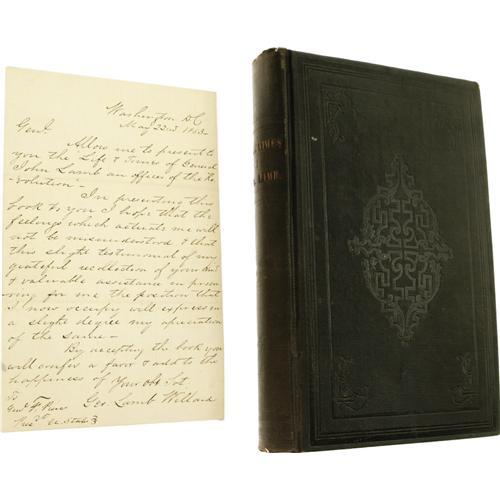 Washington DC
May 23rd 1853
Genl
Allow me to present to
you the Life & Times of General
John Lamb an officer of the Re-
-volution-
In presenting this
book to you I hope that the
feelings which actuate me will
not be misunderstood & that
this slight testimonial of my
grateful recollection of your kind
& valuable assistance in procu-
ring for me the position that
I now occupy will express in
a slight degree my apreciation
of the same-
By accepting the book you
will confer a favor & add to the
happiness of Your obt Svt
Geo. Lamb Willard
To
Genl F. Pierce
Prest U. States
TIMES
LAMB.